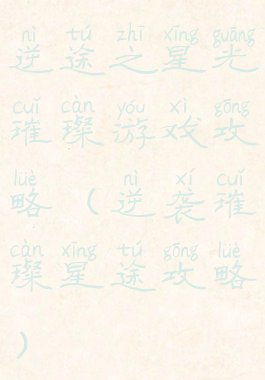 nì tú zhī xīng guāng
逆途之星光
cuǐ càn yóu xì gōng
璀璨游戏攻
lüè nì xí cuǐ
略（逆袭璀
càn xīng tú gōng lüè
璨星途攻略
）